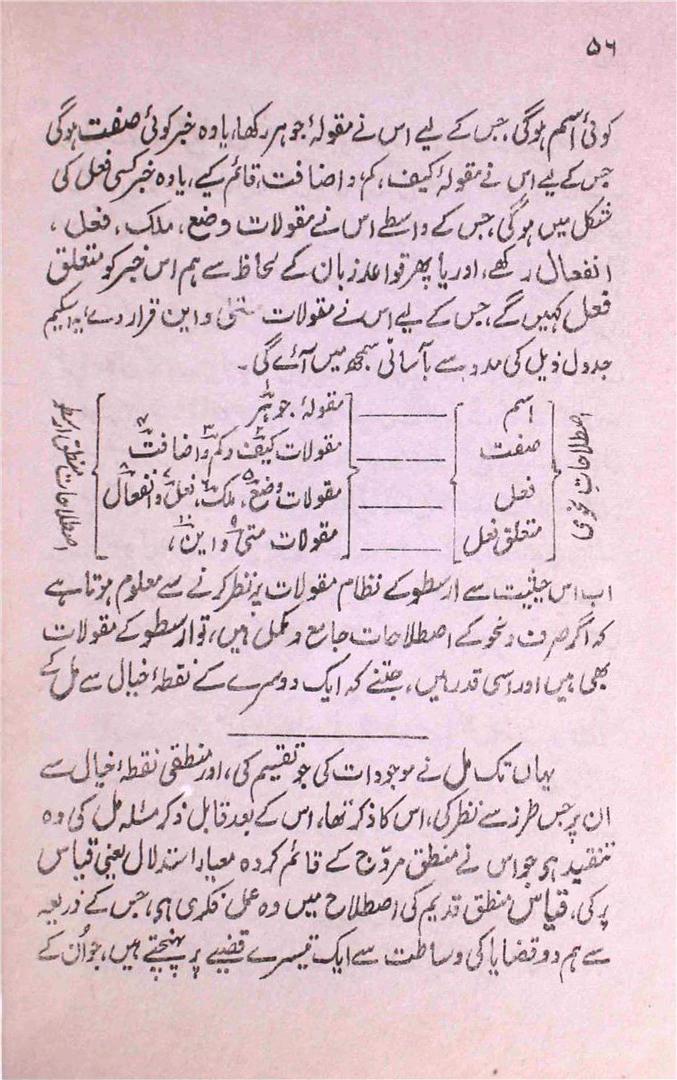 ۵۶
کوئی اسم ہوگی، جس کے لیے اس نے مقولۂ جوہر رکھا، یا وہ خبر کوئی صفت ہوگی
جس کے لیے اس نے مقولۂ کیف، کم، و اضافت، قائم کیے، یا وہ خبر کسی فعل کی
شکل میں ہوگی، جس کے واسطے اس نے مقولات وضع، ملک، فعل،
انفعال رکھے، اور یا پھر قواعد زبان کے لحاظ سے ہم اس خبر کو متعلق
فعل کہیں گے، جس کے لیے اس نے مقولات متیٰ و این قرار دے، یہ اسکیم
جدول ذیل کی مدد سے بآسانی سمجھ میں آئے گی۔
اصطلاحات نحوی
اسم ——— مقولۂ جوہر۱
صفت ——— مقولات کیف۲ و کم۳ و اضافت۴
فعل ——— مقولات وضع۵، ملک۶، فعل۷ و انفعال۸
متعلق فعل ——— مقولات متیٰ۹ و این۱۰،
اصطلاحات منطق ارسطو
اب اس حیثیت سے ارسطو کے نظام مقولات پر نظر کرنے سے معلوم ہوتا ہے
کہ اگر صرف و نحو کے اصطلاحات جامع و مکمل ہیں، تو ارسطو کے مقولات
بھی ہیں اور اسی قدر ہیں، جتنے کہ ایک دوسرے کے نقطۂ خیال سے مل کے
یہاں تک مل نے موجودات کی جو تقسیم کی، اور منطقی نقطۂ خیال سے
ان پر جس طرز سے نظر کی، اس کا ذکر تھا، اس کے بعد قابل ذکر مسئلہ مل کی وہ
تنقید ہی جو اس نے منطق مروّج کے قائم کردہ معیار استدلال یعنی قیاس
پر کی، قیاس منطق قدیم کی اصطلاح میں وہ عمل فکری ہی، جس کے ذریعہ
سے ہم دو قضایا کی وساطت سے ایک تیسرے قضیے پر پہنچتے ہیں، جو اُن کے